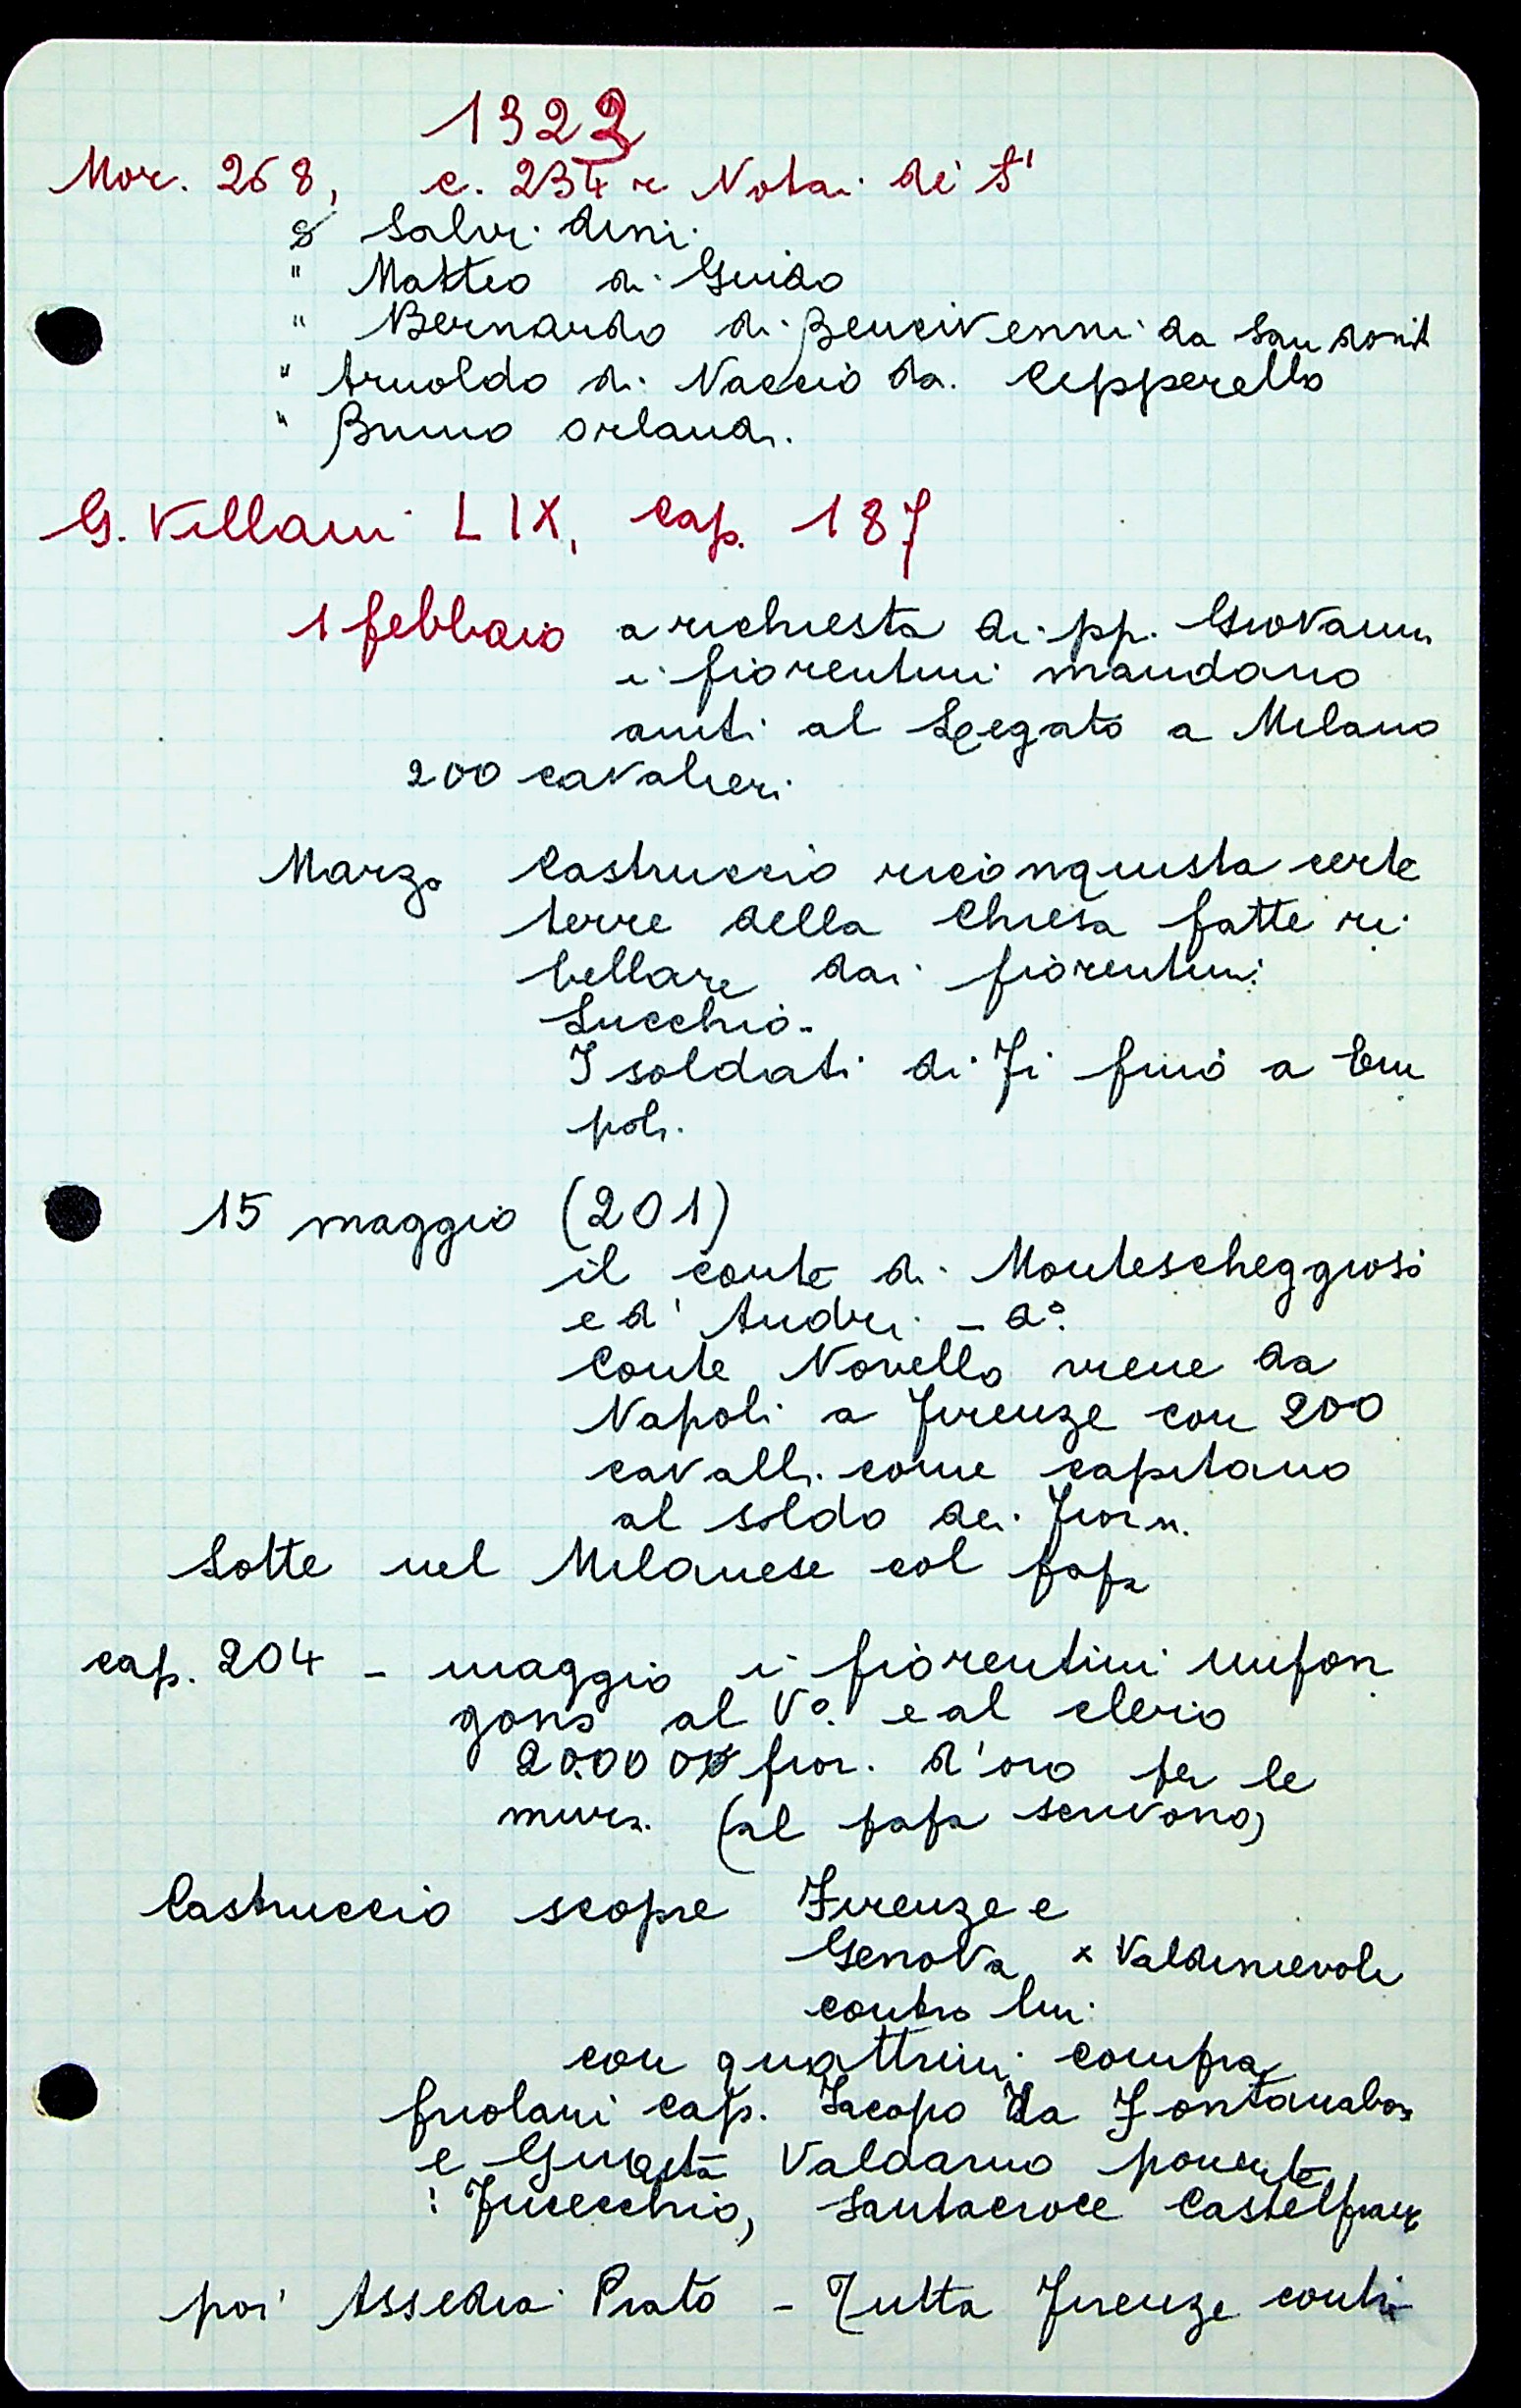 1322
Mor. 268, c. 234 r Notai dei S'
S Salvi dini
" Matteo di Guido
" Bernardo di Bencivenni da San donit
" Arnoldo di Naccio da Cepperello
" Bruno Orlandi.
G. Villani L IX, cap. 187
1 febbraio a richiesta di pp. Giovanni
i fiorentini mandano
aiuti al Legato a Milano
200 cavalieri
Marzo Castruccio riconquista certe
terre della Chiesa fatte ri
bellare dai fiorentini
Lucchio.
I soldati di Fi fino a Em
poli.
15 maggio (201)
il conte di Montescheggiosi
e d'Andri - d°
Conte Novello viene da
Napoli a Firenze con 200
cavalli come capitano
al soldo dei Fiorn.
Lotte nel Milanese col papa
cap. 204 - maggio i fiorentini impon
gono al V° e al clero
20.000 fior. d'oro per le
mura. (al papa scrivono)
Castruccio scopre Firenze e
Genova x Valdinievole
contro lui
con quattrini compra
friolani cap. Iacopo da Fontanabo
e Guasta Valdarno ponente
: Fucecchio, Santacroce Castelfranc
poi Assedia Prato - Tutta Firenze contr